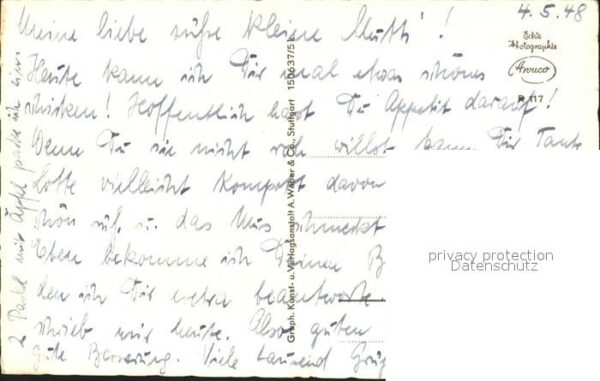 4. 5. 48
Meine liebe süße kleine Mutti!
Heute kann ich Dir mal etwas schönes
schicken! Hoffentlich hast Du Appetit darauf!
Wenn Du sie nicht roh willst kann Dir Tante
Lotte vielleicht Kompott davon
schön süß, u. das Mus schmeckt
Eben bekomme ich Deinen B
den ich Dir extra beantworte
schrieb mir heute. Also guten
gute Besserung. Viele tausend Grüß
2 Päckl mit Äpfel packe ich
Echte
Photographie
Arwaco
R 117
Graph. Kunst- u. Verlagsanstalt A. Weber & Co., Stuttgart 150637/5
privacy protection
Datenschutz